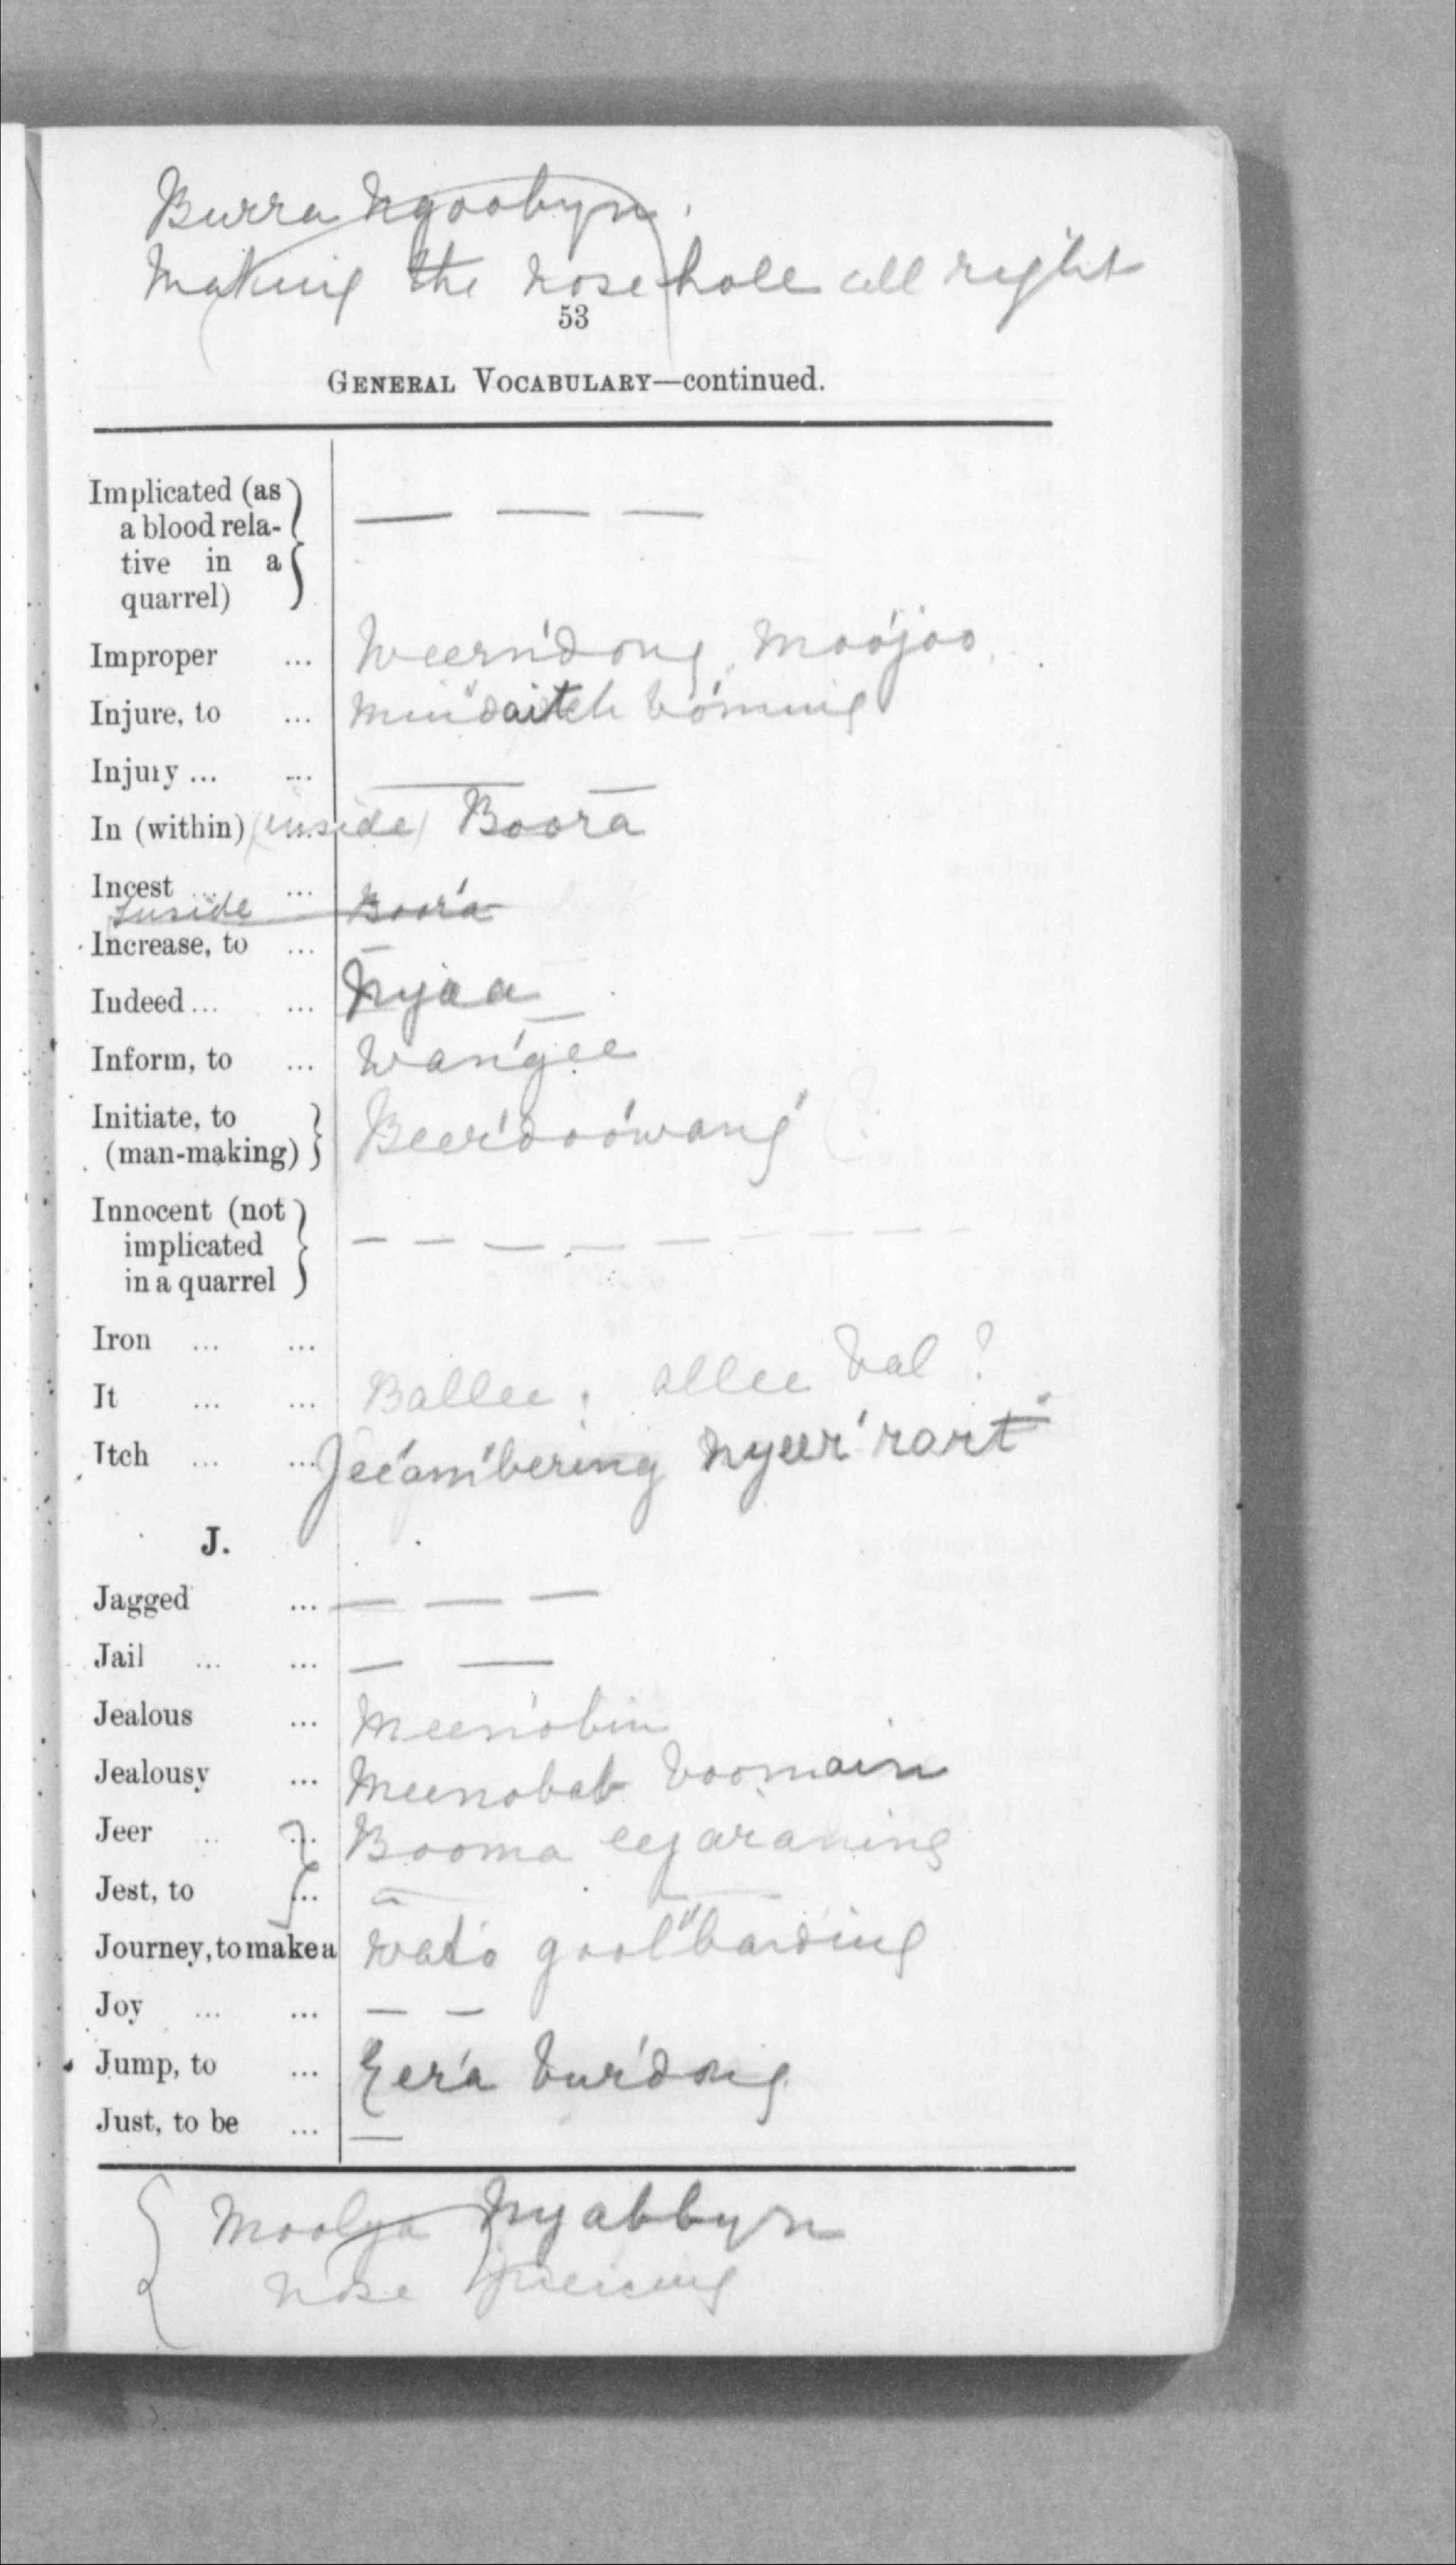 Burra Ngoobyn.
Making the nose hole all right
53
GENERAL VOCABULARY—continued.
Implicated (as
a blood rela-
tive in a
quarrel) — — —
Improper ... Weern'dong, moo'joo
Injure, to ... Min'daitch bo'ming
Injury ... ... — —
In (within) ... (inside) Boora
Incest ... ...
Inside Boo'ra
Increase, to ... —
Indeed ... ... Nyaa
Inform, to ... Wan'gee
Initiate, to
(man-making) Beer'doo'wang ?
Innocent (not
implicated
in a quarrel — — — — — — — — —
Iron ... ...
It ... ... Ballee. allee bal ?
Itch ... ... Jee'am'bering nyeer'rart
J.
Jagged ... — — —
Jail ... ... — —
Jealous ... Meen'obin
Jealousy ... Meenobab boomain
Jeer ... ... Booma
Jest, to ... —
Journey, to make a wat'o gool"barding
Joy ... ... — —
Jump, to ... Yer'a bur'dong
Just, to be ... —
Moolya Nyabbyn
Nose piercing